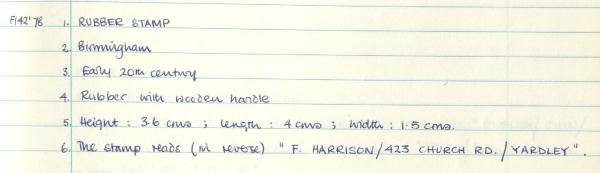 F142'78 1. RUBBER STAMP
2. Birmingham
3. Early 20th century
4. Rubber with wooden handle
5. Height : 3.6 cms ; length : 4 cms ; width : 1.5 cms.
6. The stamp reads (in reverse) " F. HARRISON / 423 CHURCH RD. / YARDLEY ".